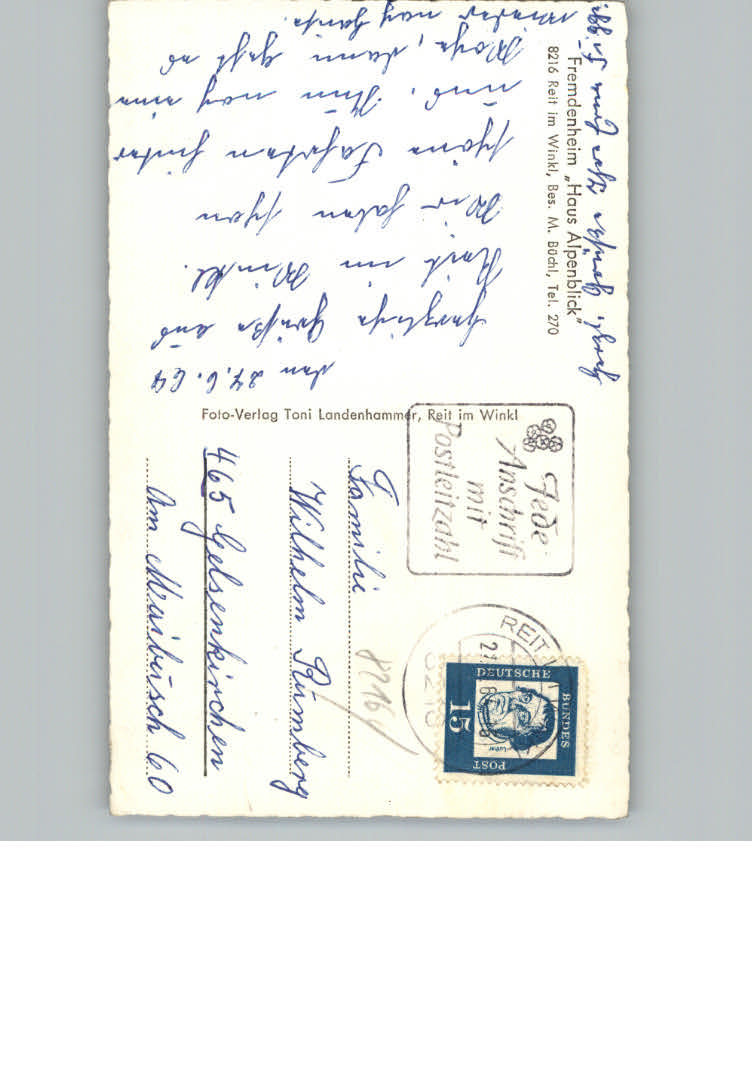 Fremdenheim „Haus Alpenblick"
8216 Reit im Winkl, Bes. M. Büchl, Tel. 270
den 27.6.64
Herzliche Grüße aus
Reit im Winkl.
Wir haben schon
schöne Fahrten hinter
uns. Nun noch eine
Woche, dann geht es
wieder nach Hause.
Herzl. Grüße
Foto-Verlag Toni Landenhammer, Reit im Winkl
Jede
Anschrift
mit
Postleitzahl
REIT I
8216
DEUTSCHE
BUNDES
POST
15
Luther
Familie
Wilhelm Rümberg
465 Gelsenkirchen
Am Maibusch 60
82166